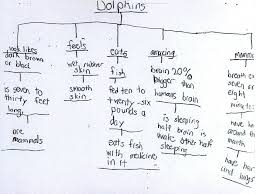 Dolphins
look likes
dark brown
or black
is seven to
thirty feet
long
are
mammals
feels
wet rubber
skin
smooth
skin
eats
fish
fed ten to
twenty-six
pounds a
day
eats fish
with medicine
in it
amazing
brain 20%
bigger than
humans brain
is sleeping
half brain is
wake other half
sleeping
breath ev
seven or
eight
minutes
have
around the
month
have
and lungs